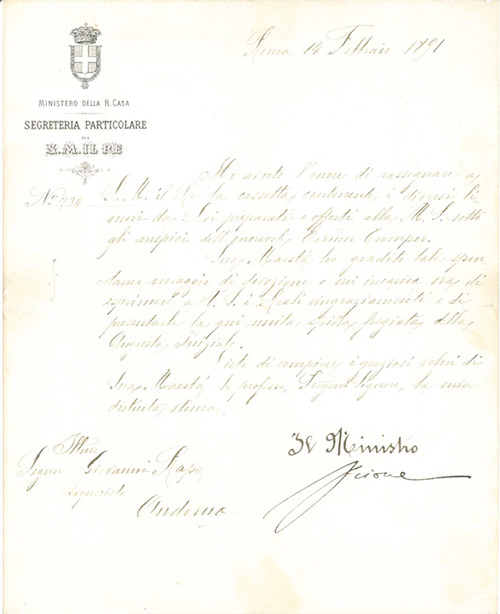 Roma 14 Febbraio 1891
MINISTERO DELLA R. CASA
SEGRETERIA PARTICOLARE
DI
S.M. IL RE
No 736
Ho avuto l'onore di rassegnare a
S. M. il Re la cassetta contenente i diversi li-
quori da Lei preparati e offerti alla M. S. sotto
gli auspici dell'onorevole
Sua Maestà ha gradito tale spon-
taneo omaggio di devozione e mi incarica ora di
esprimere a V. S. i Reali ringraziamenti e di
presentarle la qui unita spilla fregiata della
Augusta Iniziale.
Lieto di compiere i graziosi voleri di
Sua Maestà le professo, Signore, la mia
distinta stima.
Il Ministro
Illmo
Signor Giovanni Rapa
Liquorista
Andorno